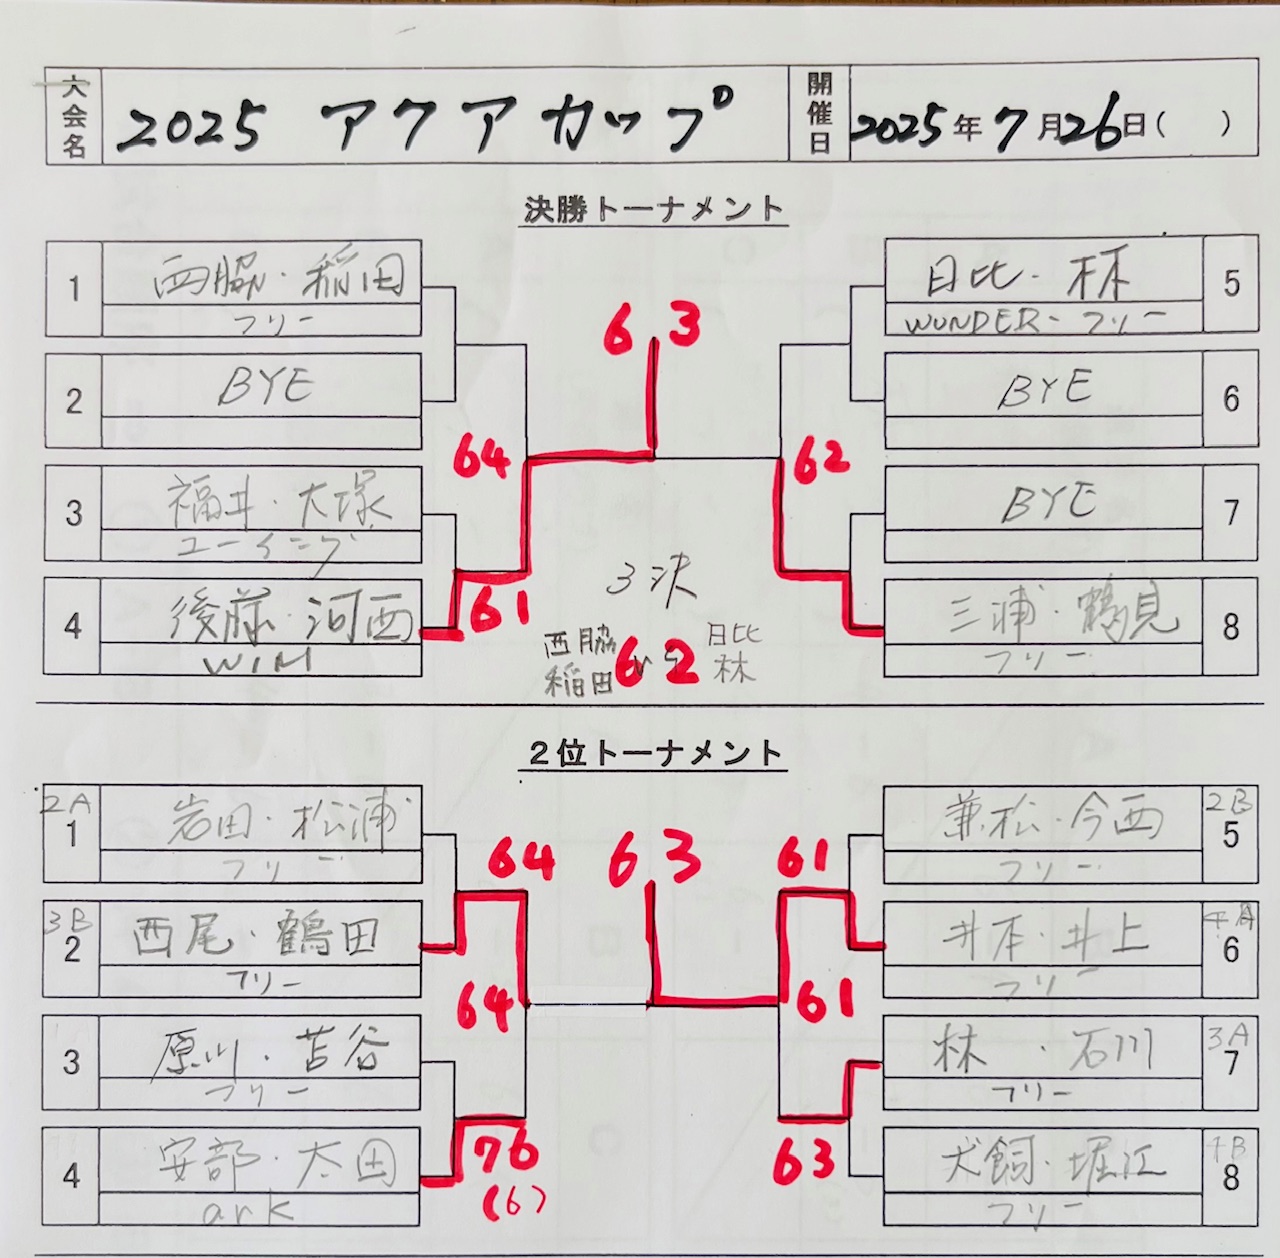 大会名 2025 アクアカップ 開催日 2025年7月26日( )
決勝トーナメント
1 西脇・稲田
フリー
2 BYE
3 福井・大塚
ユーイング
4 後藤・河西
WIM
64
61
6 3
62
日比・林 5
WUNDER-フリー
BYE 6
BYE 7
三浦・鶴見 8
フリー
3決
西脇 日比
稲田 vs 林
6 2
2位トーナメント
2A
1 岩田・松浦
フリー
3B
2 西尾・鶴田
フリー
3 原川・苫谷
フリー
4 安部・太田
ark
64
64
76
(6)
6 3
61
61
63
兼松・今西 2B
5
フリー
井本・井上 4A
6
フリー
林・石川 3A
7
フリー
犬飼・堀江 4B
8
フリー